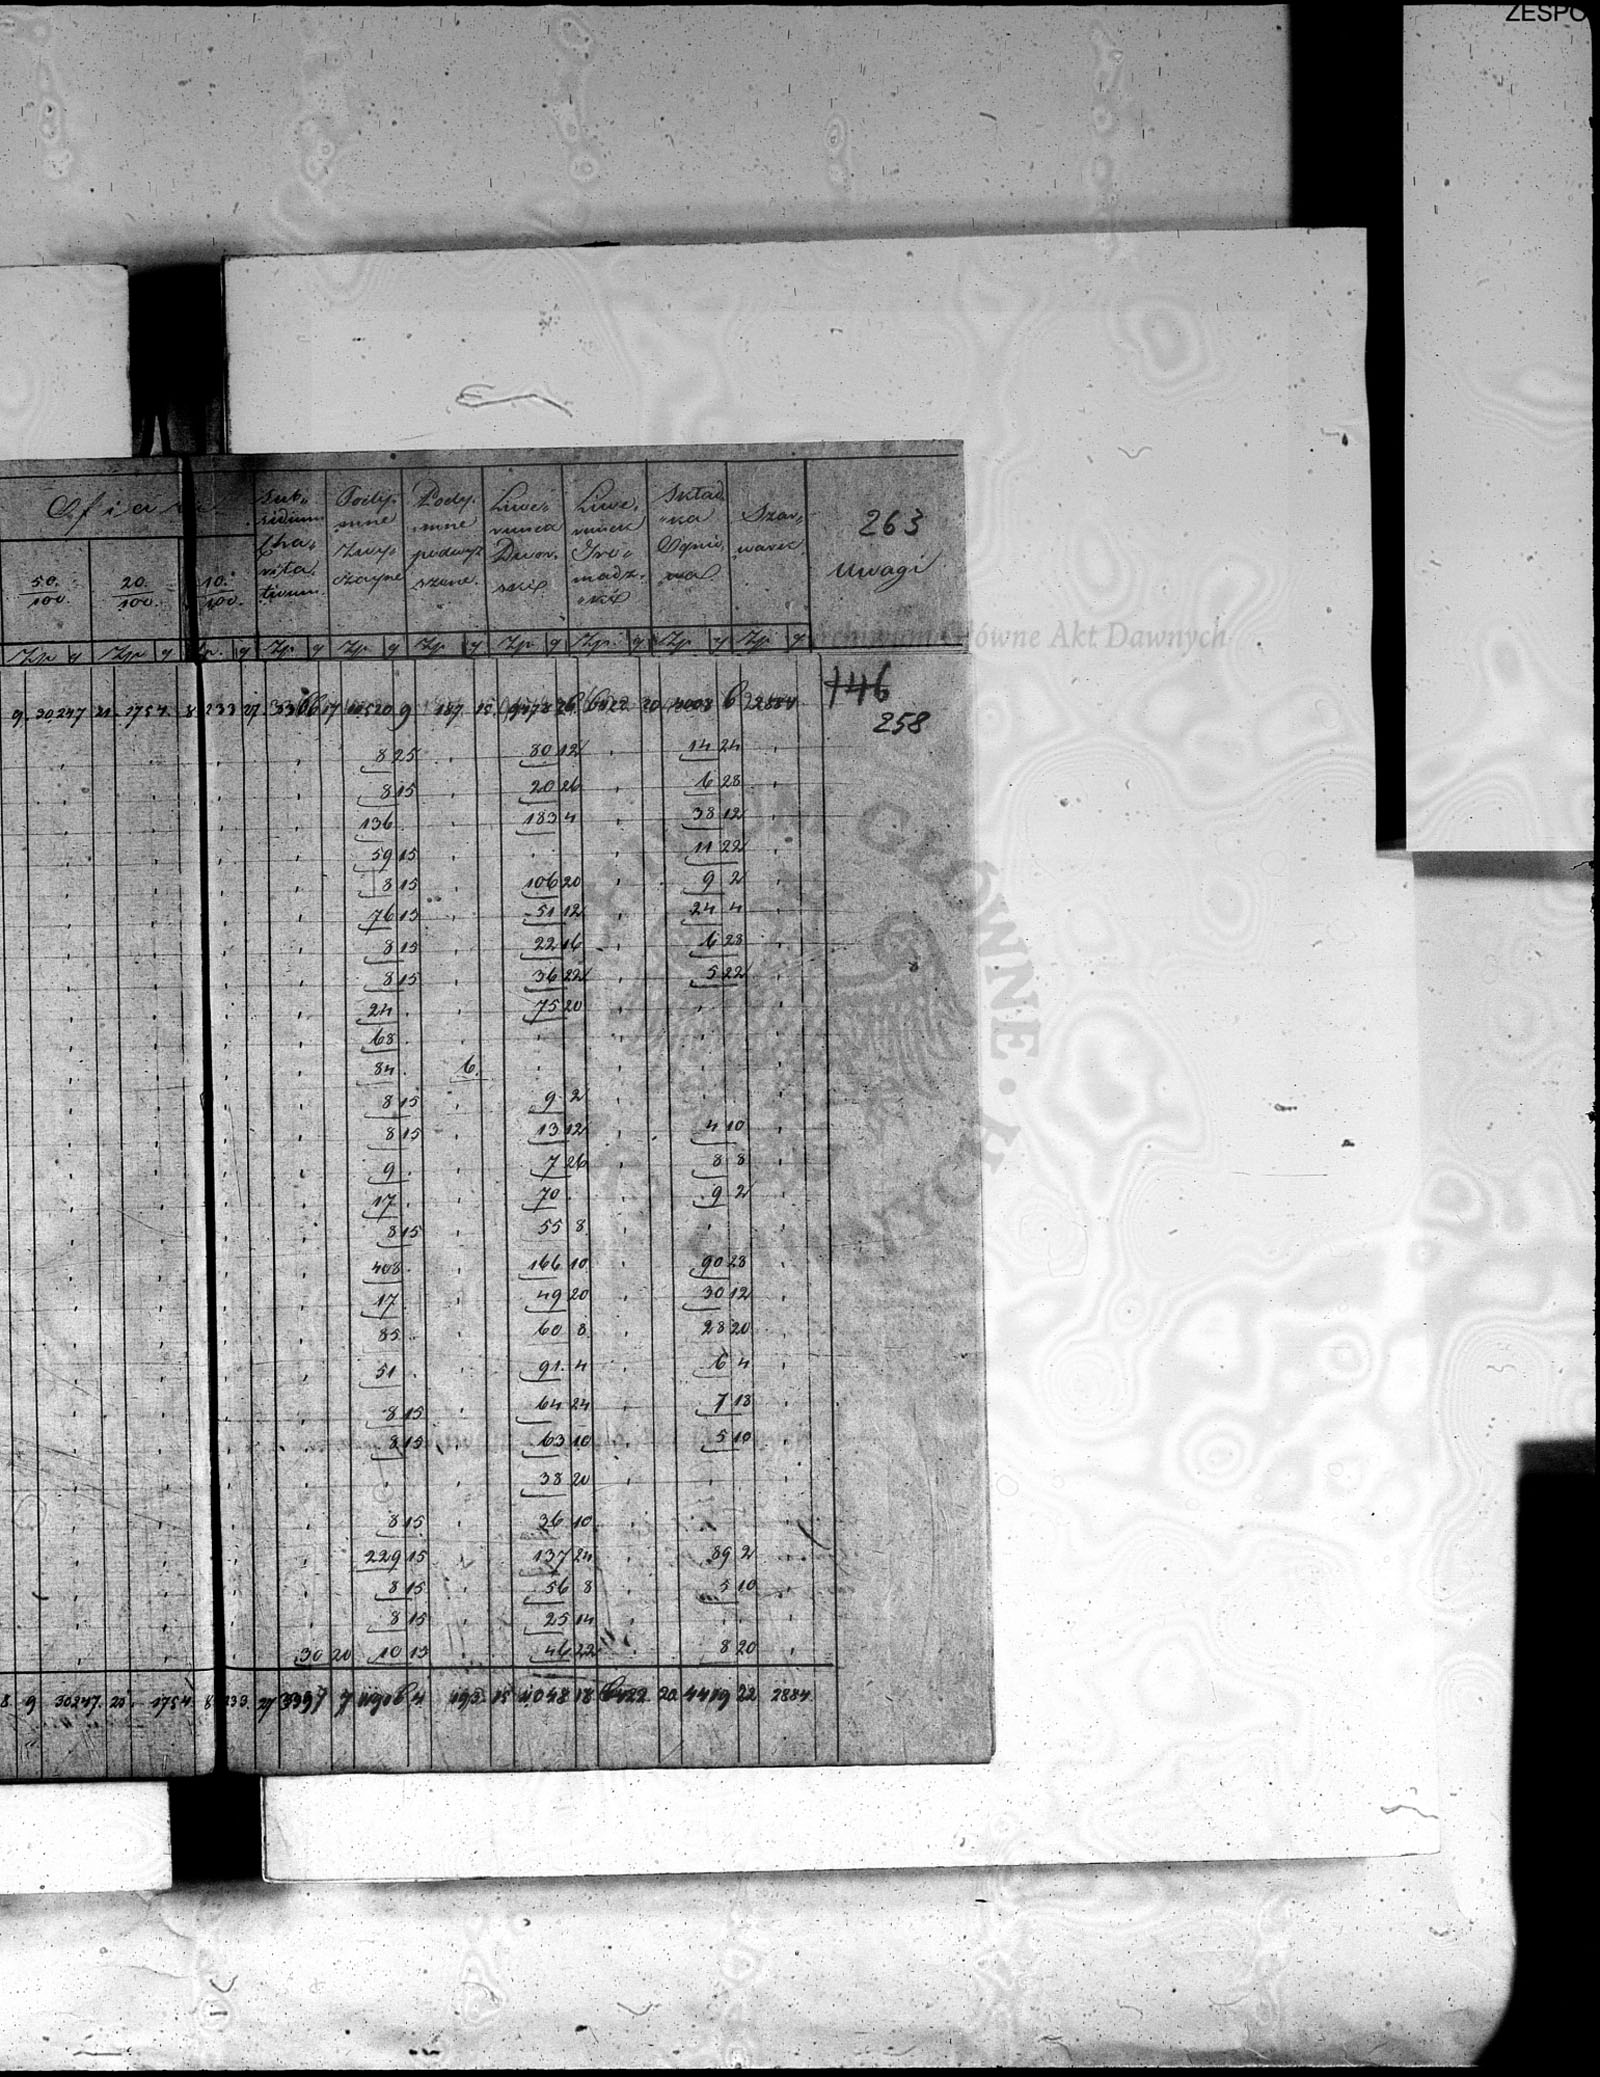 ZESPO
Ofiara
50/100. 20./100. 10./100.
Subsidium Charitativum
Podymne Zwyczayne
Podymne podwyższone.
Liwerunek Dworski
Liwerunek Gromadzki
Składka Ogniowa
Szarwark
263
Uwagi
Zp g Zp g Zp. g Zp. g Zp. g Zp. g Zp g Zp. g Zp. g Zp. g
Archiwum Główne Akt Dawnych
9. 30247 21. 1754. 8 233 27. 3366 17 9 187. 15. 20 6 2884
146
258
8 25 80 12 14 24
8 15 20 26 6 28
136 183 4 38 12
59 15 11 22
8 15 106 20 9 2
76 15 51 12 24 4
8 15 22 16 6 28
8 15 36 22 5 22
24 75 20
68
84 6.
8 15 9 2
8 15 13 12 4 10
9 7 26 8 8
17 70 9 2
8 15 55 8
408 166 10 90 28
17 49 20 30 12
85 60 8 28 20
51 91 4 6 4
8 15 64 24 7 18
8 15 63 10 5 10
38 20
8 15 36 10
229 15 137 24 89 2
8 15 56 8 5 10
8 15 25 14
30 20 10 15 46 22 8 20
8 9 30247. 21 1754 8 233. 27 3397 7 11906 4 193 15 11048 18 6422 20 4419 22 2884